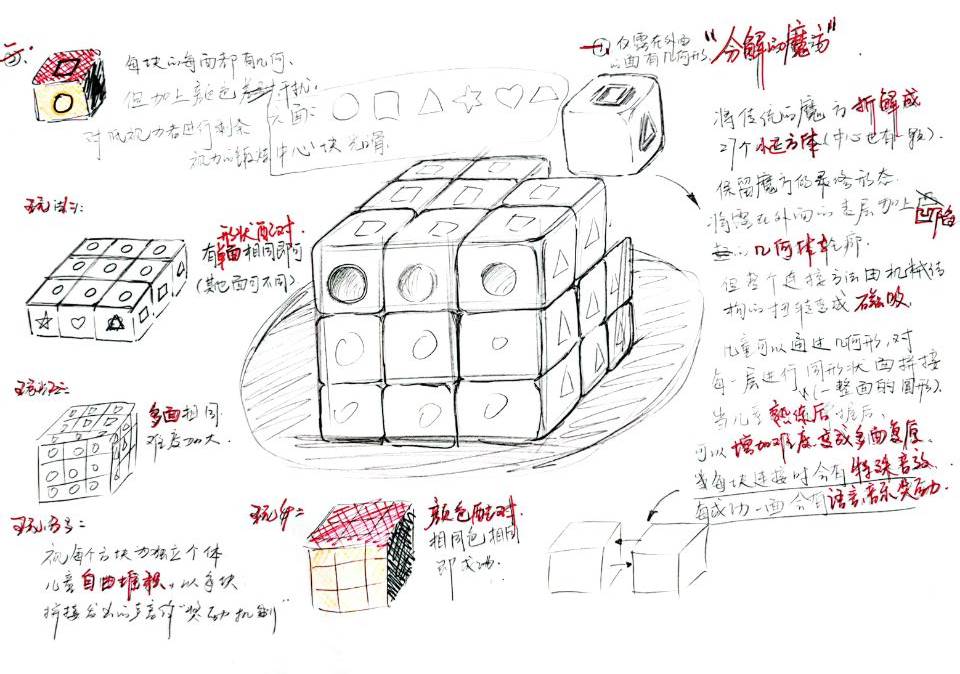 每块的每面都有几何,
但加上颜色干扰,
对低视力者进行刺激
视力的锻炼
六面:
中心块光滑
①仅需在外面
的面有几何形.
"分解的魔方".
将传统的魔方拆解成
27个小正方体(中心也有一颗).
保留魔方的最终形态.
将露在外面的表层加上凹陷
的几何体轮廓.
但整个连接方法由机械结
构的扭转变成磁吸.
儿童可以通过几何形,对
每一层进行同形状面拼接
(一整面的圆形).
当儿童熟练后,
可以增加难度.变成多面复原.
当每块连接时会有特殊音效.
每成功一面会有语言,音乐奖励.
玩法1:
形状配对.
有单面相同即可
(其他面可不同)
玩法2:
多面相同.
难度加大.
玩法3:
视每个方块为独立个体
儿童自由堆积,以每块
拼接发出的声音作"奖励机制"
颜色配对.
相同色相同
即成功.